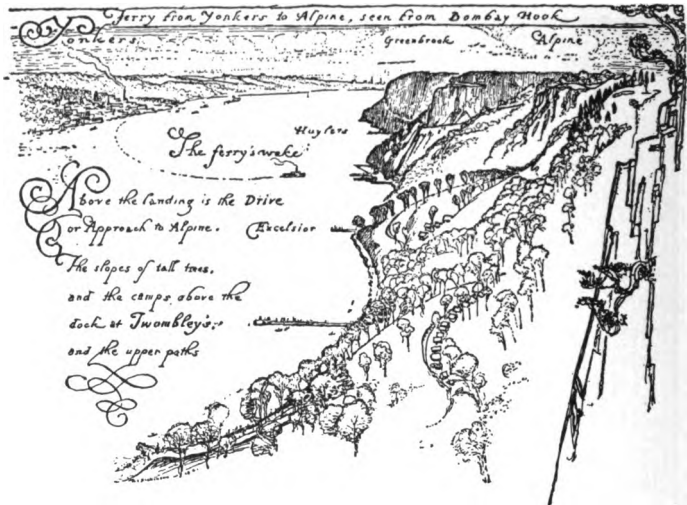 Ferry from Yonkers to Alpine, seen from Bombay Hook
Yonkers
Greenbrook
Alpine
Huylers
The ferry's wake
Above the landing is the Drive
or Approach to Alpine.
Excelsior
The slopes of tall trees.
and the camps above the
dock at Twombley's:
and the upper paths